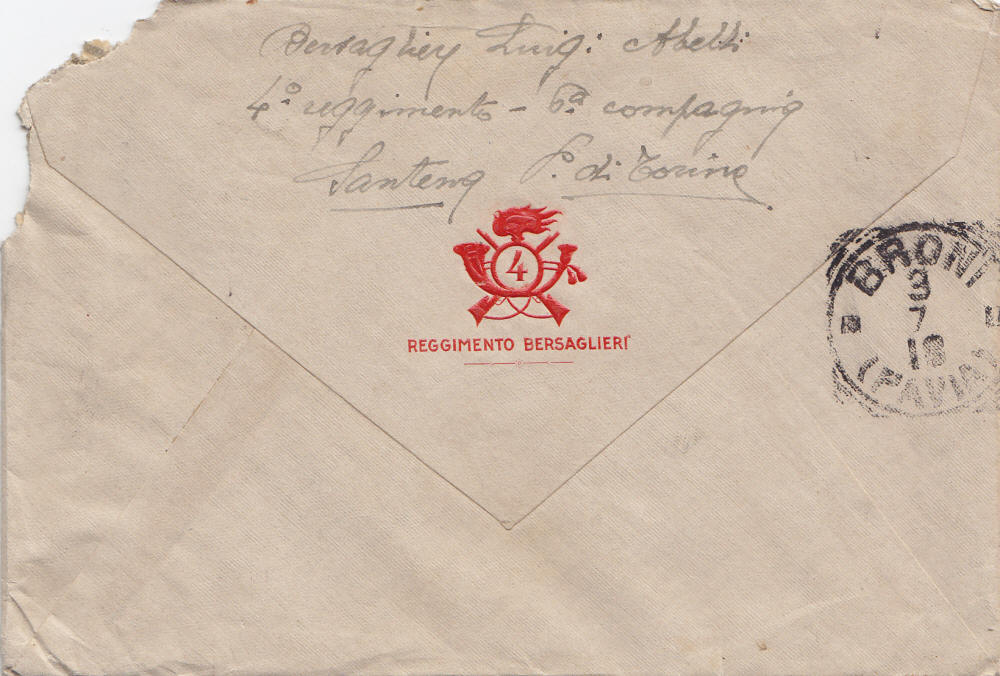 Bersagliery Luigi Abelli
4° reggimento - 6ª compagnia
Santena P. di Torino
4
REGGIMENTO BERSAGLIERI
BRONI
3
7
18
(PAVIA)